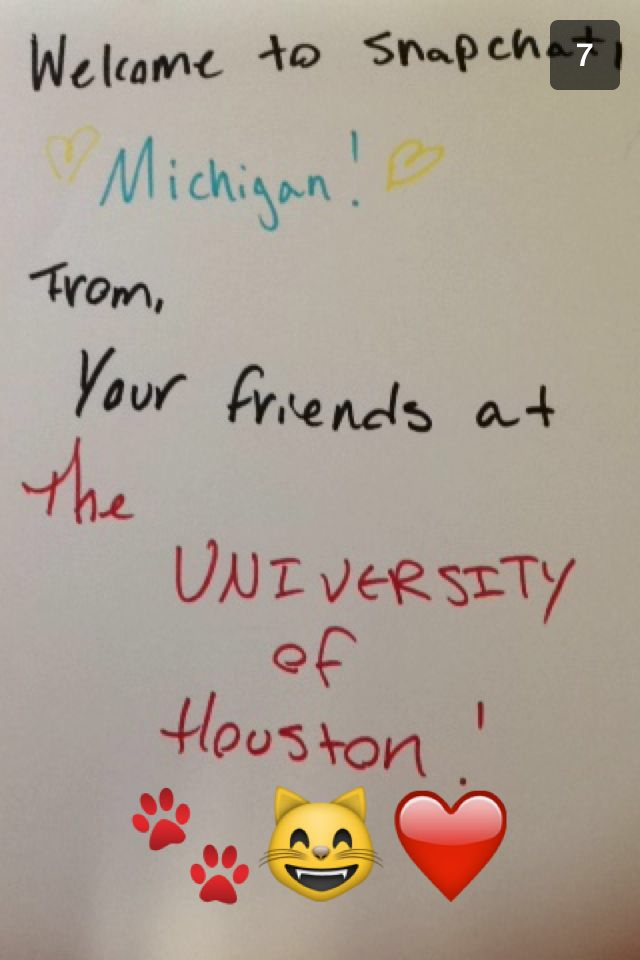 Welcome to snapchat,
7
Michigan!
From,
Your friends at
the
UNIVERSITY
of
Houston!